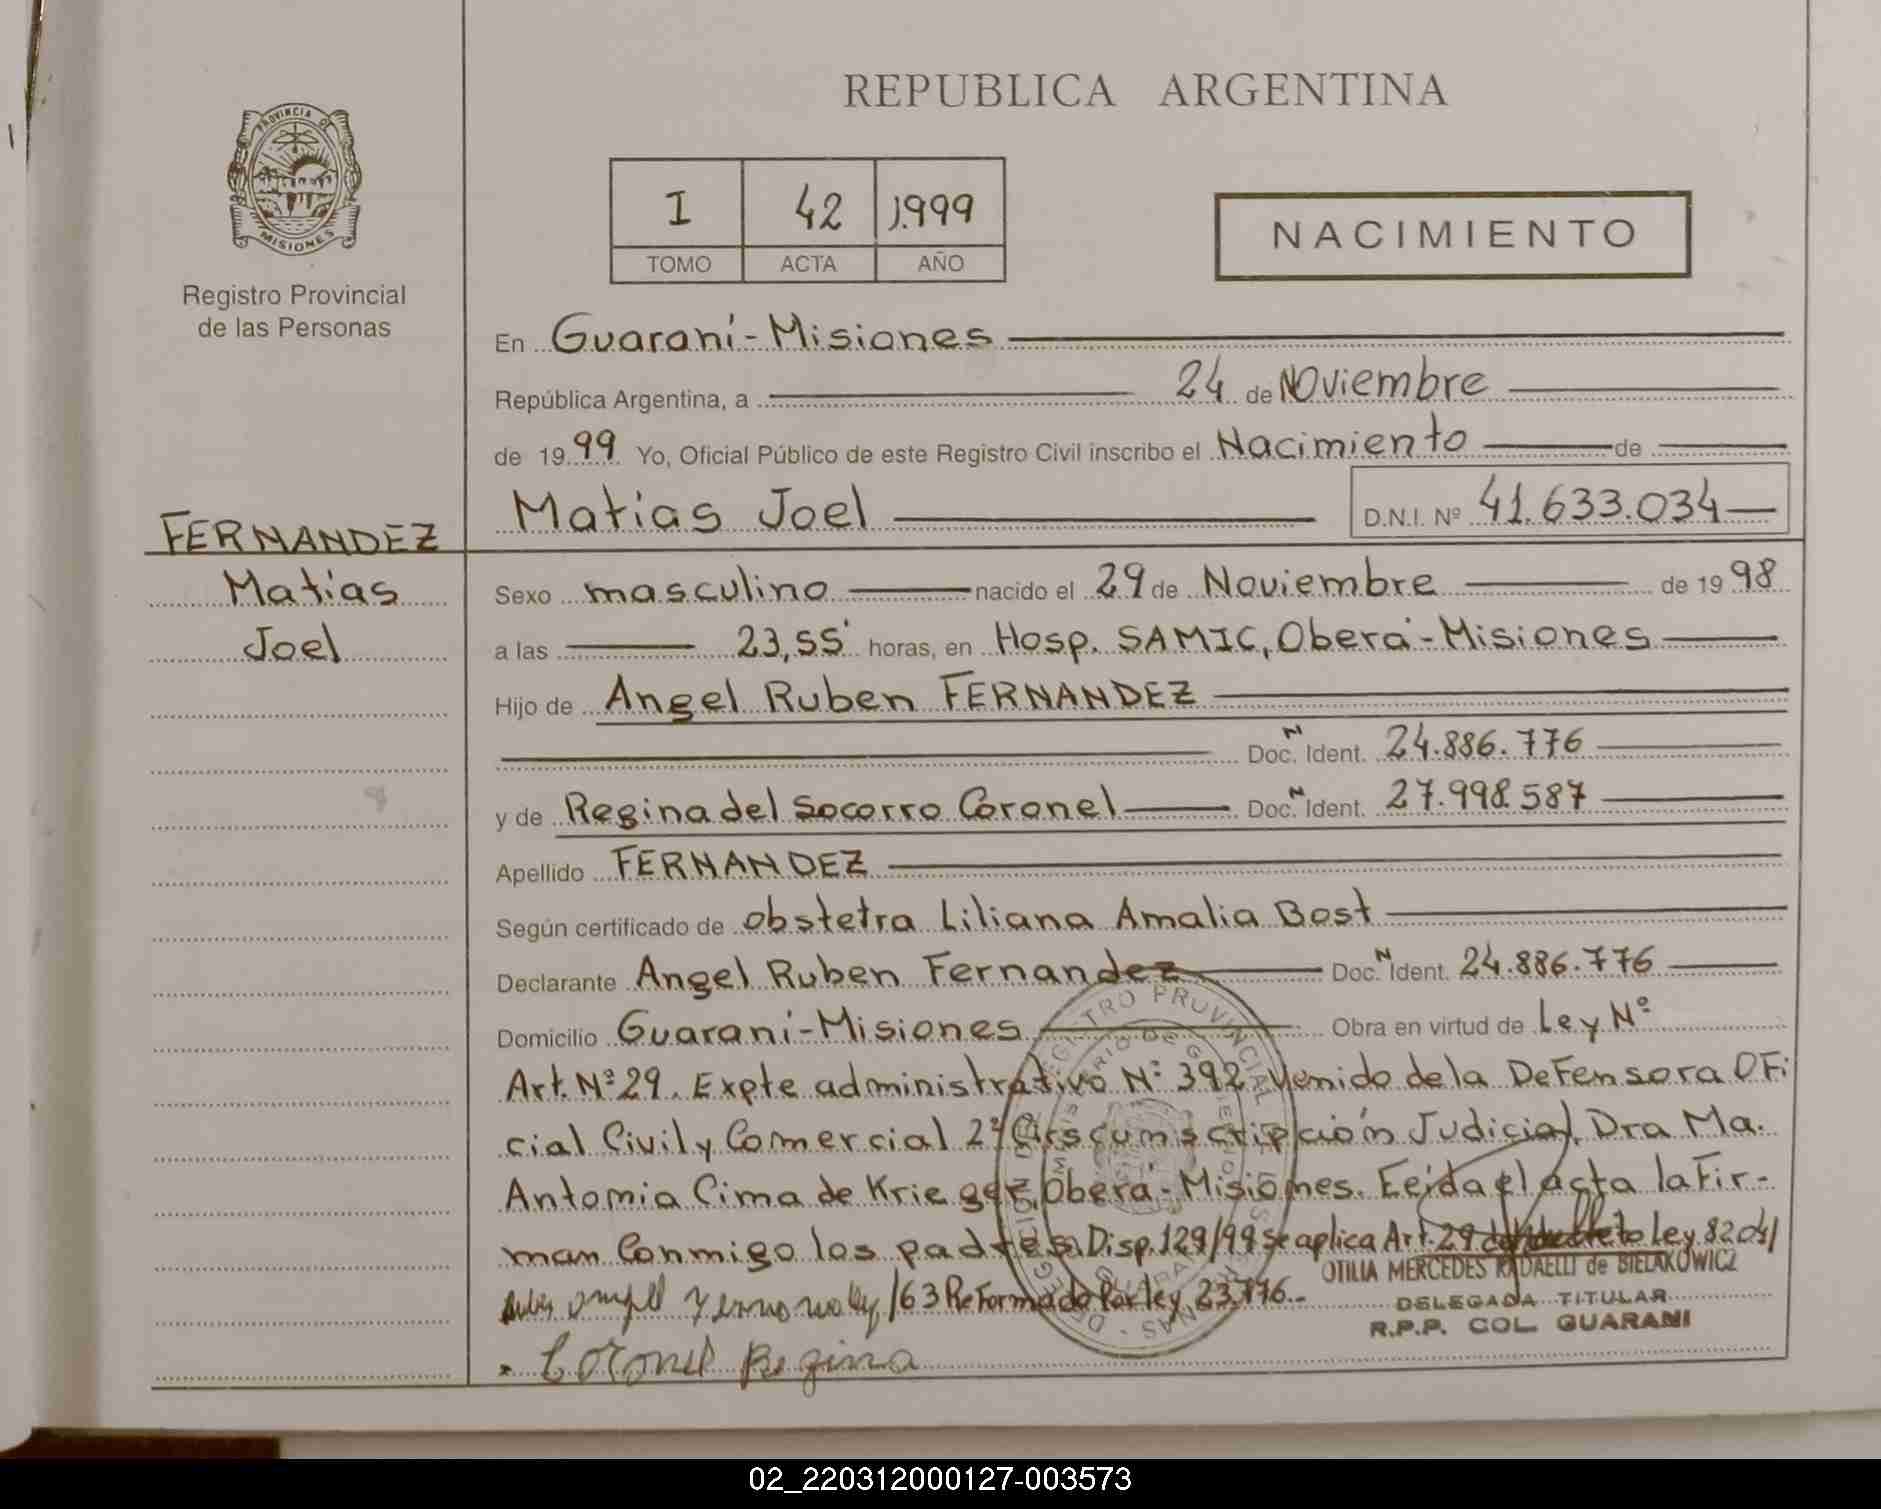 REPUBLICA ARGENTINA
PROVINCIA DE
MISIONES
I 42 1.999
TOMO ACTA AÑO
NACIMIENTO
Registro Provincial
de las Personas
En Guaraní-Misiones
República Argentina, a 24 de Noviembre
de 1999 Yo, Oficial Público de este Registro Civil inscribo el Nacimiento de
Matias Joel D.N.I. Nº 41.633.034
FERNANDEZ
Matías
Joel
Sexo masculino nacido el 29 de Noviembre de 1998
a las 23,55' horas, en Hosp. SAMIC, Oberá-Misiones
Hijo de Angel Ruben FERNANDEZ
Doc. N Ident. 24.886.776
y de Regina del Socorro Coronel Doc. N Ident. 27.998.587
Apellido FERNANDEZ
Según certificado de obstetra Liliana Amalia Bost
Declarante Angel Ruben Fernandez Doc. N Ident. 24.886.776
Domicilio Guaraní-Misiones Obra en virtud de Ley Nº
Art. Nº 29. Expte administrativo Nº 392 Venido de la Defensora Ofi
cial Civil y Comercial 2ª Circunscripción Judicial, Dra Ma.
Antonia Cima de Krieger, Oberá-Misiones. Leída el acta la Fir-
man Conmigo los padres. Disp. 129/99 se aplica Art. 29 Ley 8204/
/63 Reformado Por ley 23.776.-
OTILIA MERCEDES RADAELLI de BIELAKOWICZ
DELEGADA TITULAR
R.P.P. COL. GUARANI
Coronel Regina
02_220312000127-003573